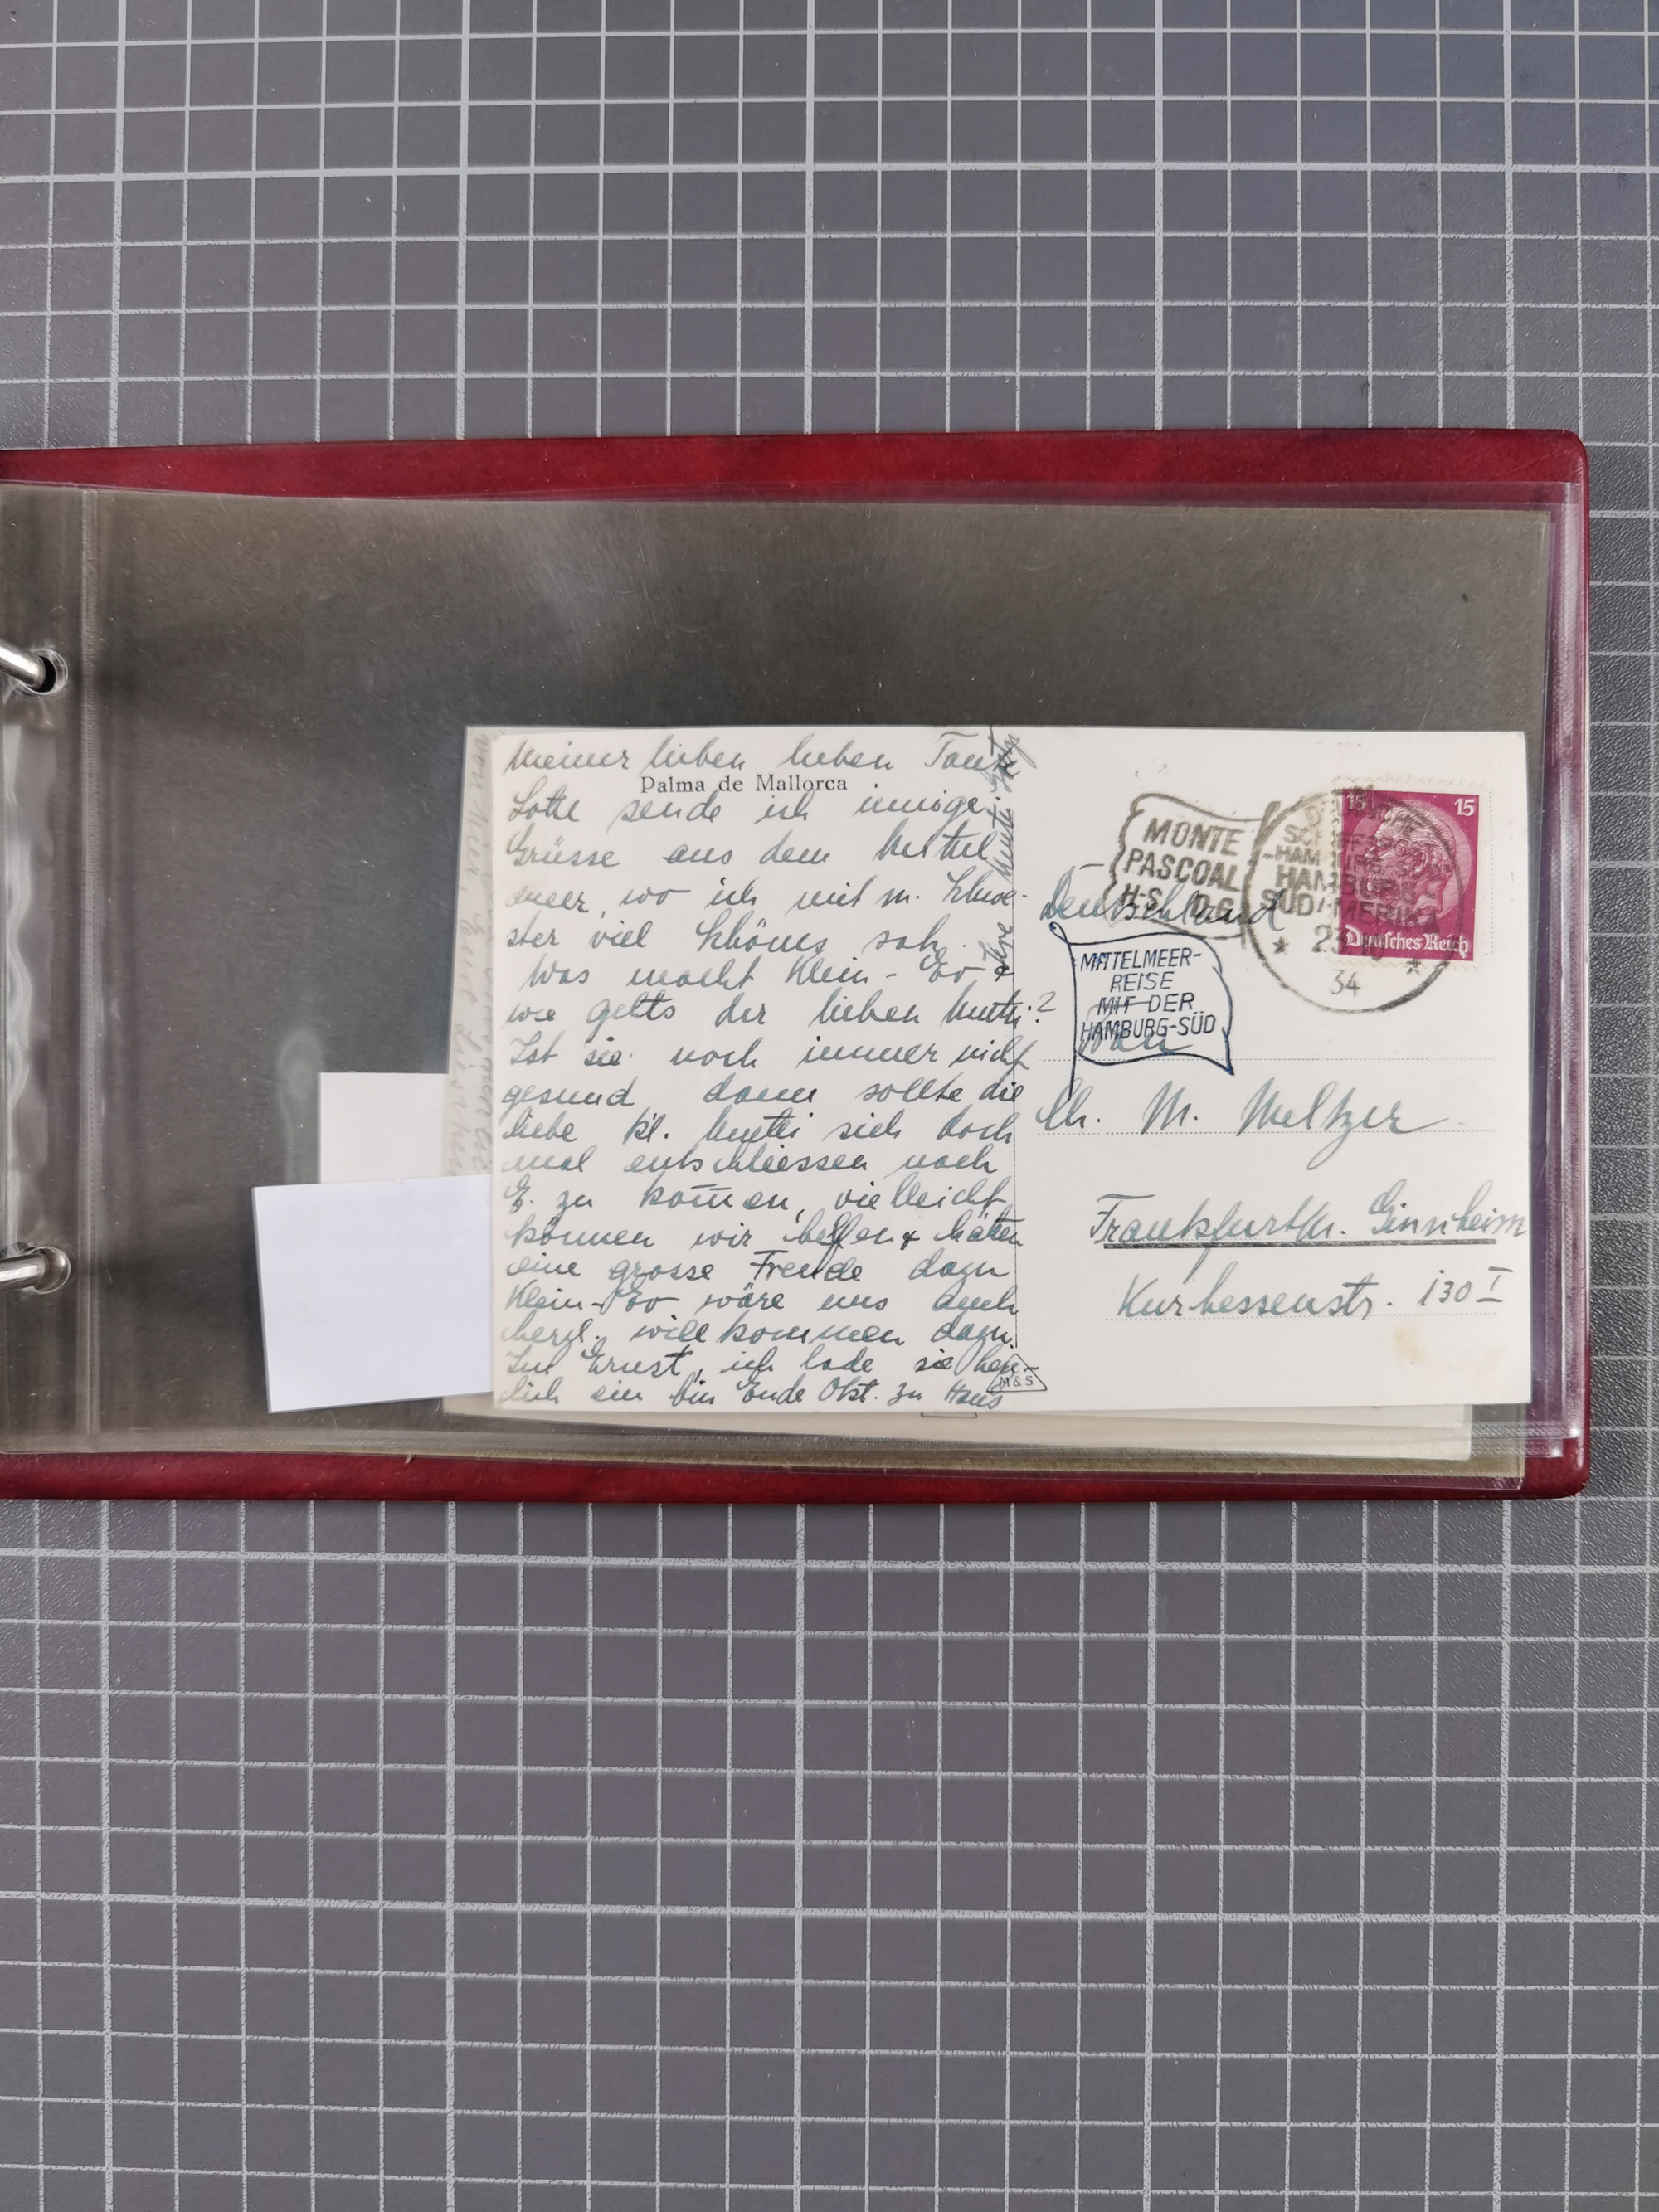 Meiner lieben lieben Tante
Palma de Mallorca
Lotte sende ich innige
Grüsse aus dem Mittel
meer, wo ich mit m. Schwe-
ster viel Schönes sah.
Was macht Klein-Ev &
wie gehts der lieben Mutti?
Ist sie noch immer nicht
gesund, dann sollte die
liebe kl. Mutti sich doch
mal entschliessen nach
E. zu kom̄en, vielleicht
können wir helfen & hätten
eine grosse Freude dazu
Klein-Ev wäre uns auch
herzl. willkommen dazu.
Im Ernst, ich lade sie herz-
lich ein bin Ende Okt. zu Haus
Ihre
M&S
MONTE
PASCOAL
H-S. D.G.
DEUTSCHE
SCHIFFSPOST
HAMBURG-
SÜDAMERIKA
23
34
15 15
Deutsches Reich
Deutschland
MITTELMEER-
REISE
MIT DER
HAMBURG-SÜD
M. Meltzer
Frankfurt/M. Ginnheim
Kurhessenstr. 130 I